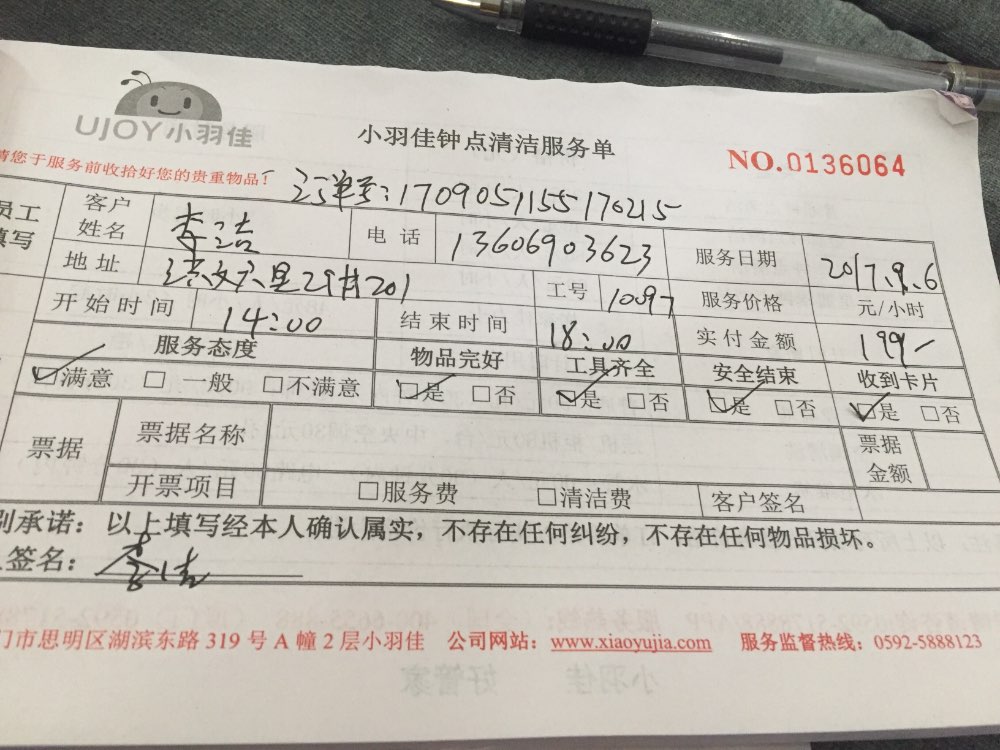 UJOY小羽佳
小羽佳钟点清洁服务单
NO.0136064
请您于服务前收拾好您的贵重物品！
订单号：1709051155170215
员工填写 客户姓名 李洁 电话 13606903623 服务日期 2017.9.6
地址 201 工号 1097 服务价格 元/小时
开始时间 14:00 结束时间 18:00 实付金额 199-
服务态度 物品完好 工具齐全 安全结束 收到卡片
☑满意 □一般 □不满意 ☑是 □否 ☑是 □否 ☑是 □否 ☑是 □否
票据 票据名称 票据金额
开票项目 □服务费 □清洁费 客户签名
别承诺：以上填写经本人确认属实，不存在任何纠纷，不存在任何物品损坏。
签名：李洁
门市思明区湖滨东路 319 号 A 幢 2 层小羽佳 公司网站：www.xiaoyujia.com 服务监督热线：0592-5888123